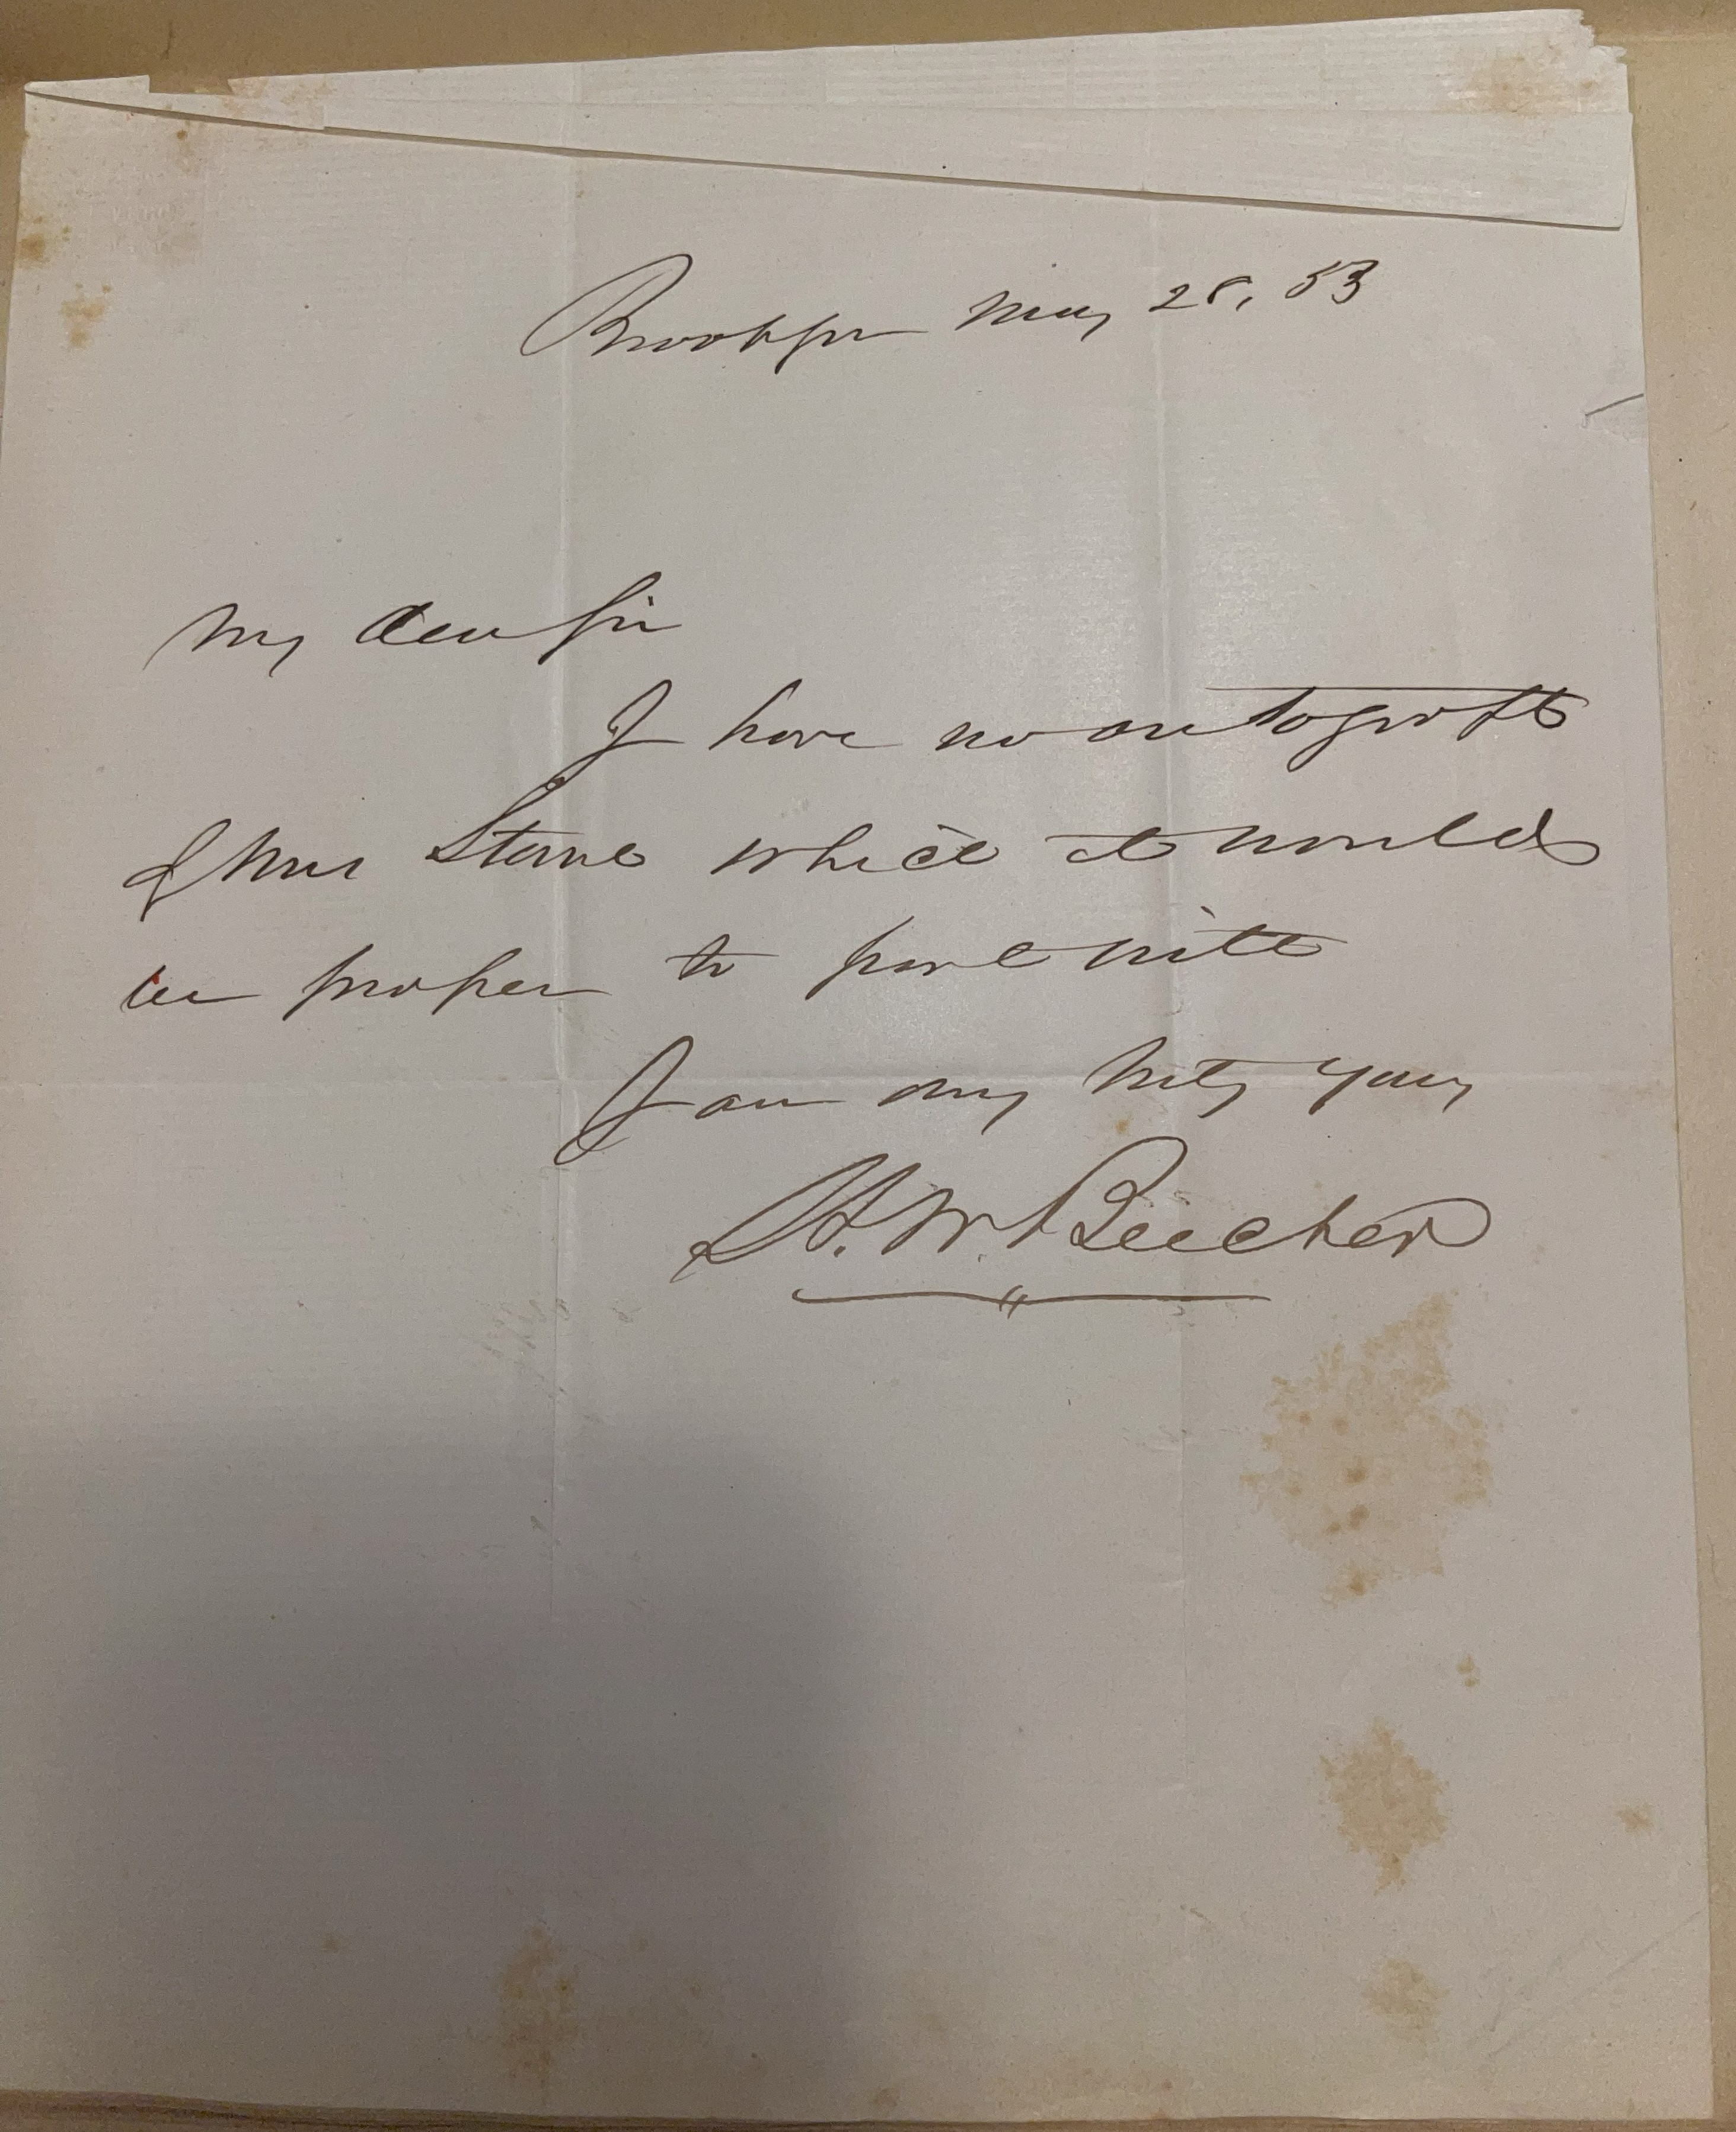 Brooklyn May 28, 53
My dear Sir
I have no autograph
of Mrs Stowe which it would
be proper to part with
I am very truly yours
H. W. Beecher